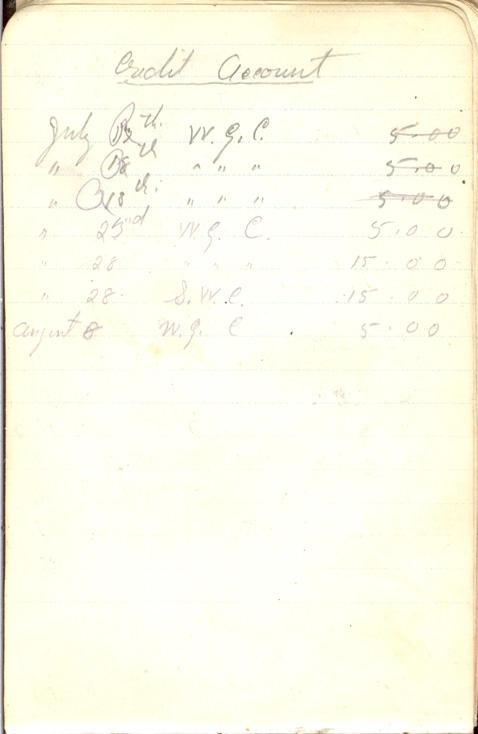 Credit Account
July 13th W.G.C. 5.0 0
" 18th " " " 5.0 0
" 18th " " " 5.0 0
" 23rd W.G. C. 5.0 0
" 28 " " " 15.0 0
" 28. S.W.C. 15.0 0
August 8 W.G. C. 5.00